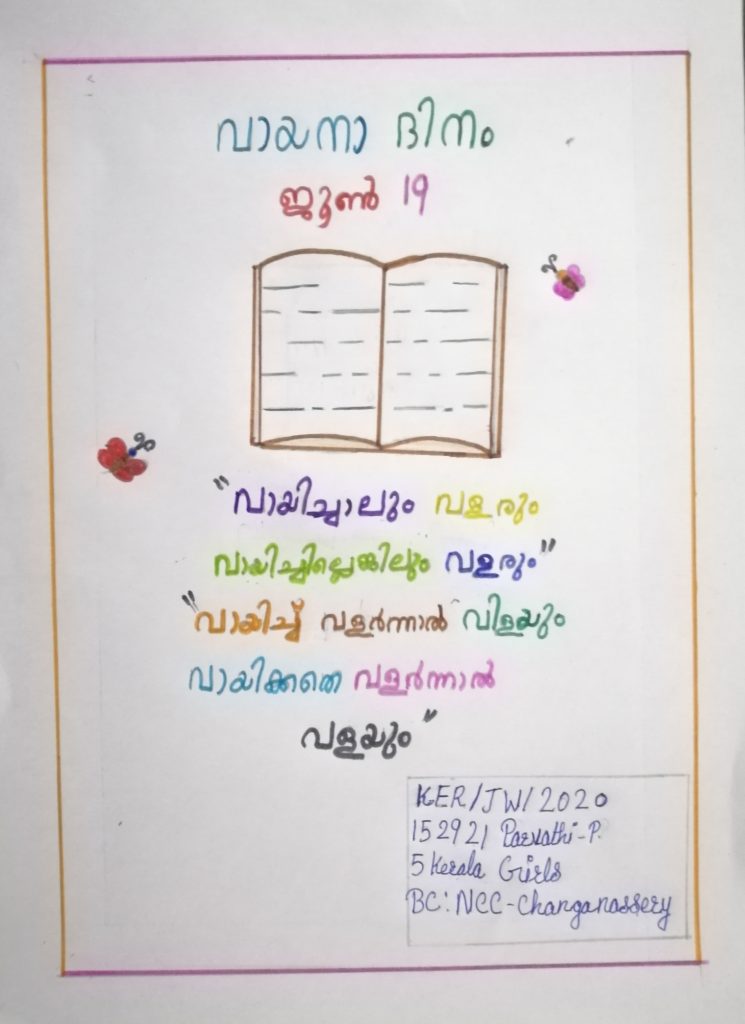 വായനാ ദിനം
ജൂൺ 19
"വായിച്ചാലും വളരും
വായിച്ചില്ലെങ്കിലും വളരും"
"വായിച്ച് വളർന്നാൽ വിളയും
വായിക്കതെ വളർന്നാൽ
വളയും"
KER/JW/2020
152921 Parvathi-P.
5 Kerala Girls
BC: NCC-Changanassery